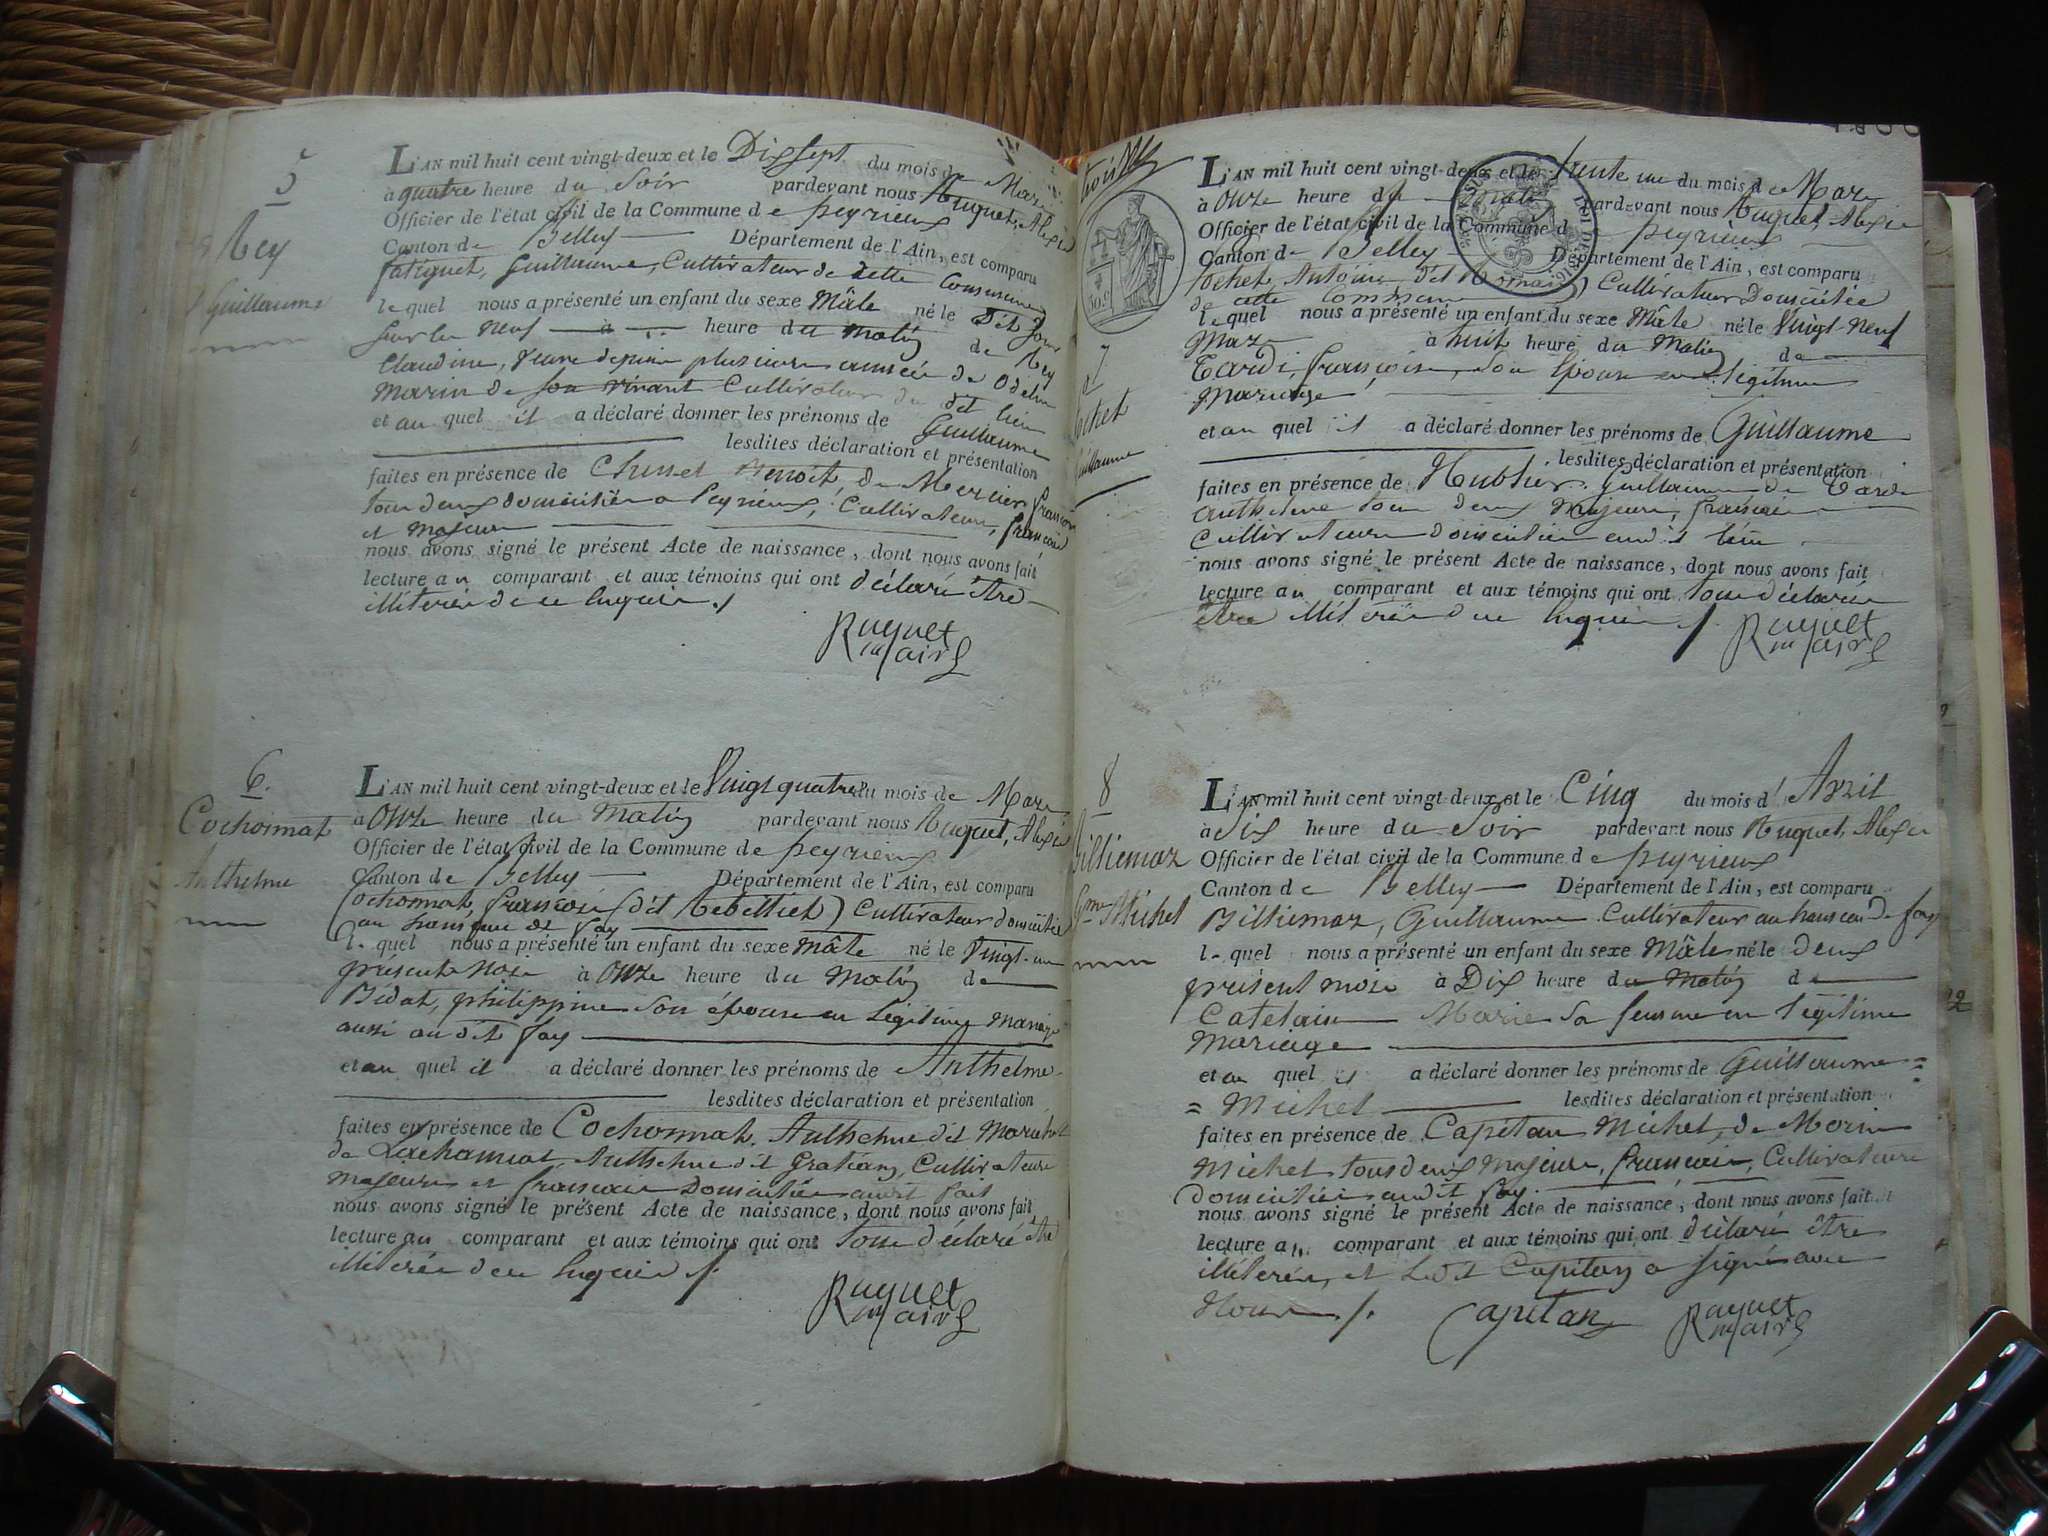 5
Rey
Guillaume
L'AN mil huit cent vingt-deux et le Dixsept du mois de Mars
à quatre heure du Soir pardevant nous Huguet, Alexis
Officier de l'état civil de la Commune de peyrieux
Canton de Belley Département de l'Ain, est comparu
fatiguet, Guillaume, Cultivateur de dette Commune
le quel nous a présenté un enfant du sexe Mâle né le dit jour
sur les neuf heure du matin de Rey
Claudine, veuve depuis plusieurs années de
Marin de son vivant Cultivateur du dit lieu
et au quel il a déclaré donner les prénoms de Guillaume
lesdites déclaration et présentation
faites en présence de Benoit, de Mercier françois
tous deux domiciliés a Peyrieux, Cultivateurs, français
et majeurs
nous avons signé le présent Acte de naissance, dont nous avons fait
lecture au comparant et aux témoins qui ont déclaré être
illiterés de ce enquis ./
Ruguet
maire
6.
Cochonnat
Anthelme
L'AN mil huit cent vingt-deux et le Vingt quatre du mois de Mars
à Onze heure du Matin pardevant nous Huguet, Alexis
Officier de l'état civil de la Commune de peyrieux
Canton de Belley Département de l'Ain, est comparu
Cochonnat, françois (dit Rebilliet) Cultivateur domicilié
au hameau de fay
le quel nous a présenté un enfant du sexe mâle né le Vingt-un
présent mois à Onze heure du Matin de
Bidat, philippine son épouse en Légitime Mariage
aussi au dit fay
et au quel il a déclaré donner les prénoms de Anthelme
lesdites déclaration et présentation
faites en présence de Cochonnat, Anthelme dit Marichat
de Anthelme dit Gratian, Cultivateurs
majeurs et français Domiciliés audit fait
nous avons signé le présent Acte de naissance, dont nous avons fait
lecture au comparant et aux témoins qui ont tous déclaré être
illiterés de ce enquis ./
Ruguet
maire
trois
30.c
7
Guillaume
L'AN mil huit cent vingt-deux et le trente un du mois de Mars
à Onze heure du matin pardevant nous Huguet, Alexis
Officier de l'état civil de la Commune de peyrieux
Canton de Belley Département de l'Ain, est comparu
Antoine dit Romain) Cultivateur Domicilié
de cette Commune
le quel nous a présenté un enfant du sexe Mâle né le Vingt-Neuf
Mars à huit heure du Matin de
Tardi, françoise, son Epouse en légitime
Mariage
et au quel il a déclaré donner les prénoms de Guillaume
lesdites déclaration et présentation
faites en présence de Guillaume de Tardi
anthelme tous deux Majeurs, français
Cultivateurs domiciliés audit lieu
nous avons signé le présent Acte de naissance, dont nous avons fait
lecture au comparant et aux témoins qui ont tous déclaré
être illiterés de ce enquis ./
Ruguet
maire
8
Billiemaz
Gme Michel
L'AN mil huit cent vingt-deux et le Cinq du mois d'Avril
à Six heure du Soir pardevant nous Huguet, Alexis
Officier de l'état civil de la Commune de peyrieux
Canton de Belley Département de l'Ain, est comparu
Billiemaz, Guillaume Cultivateur au hameau de fay
le quel nous a présenté un enfant du sexe Mâle né le deux
présent mois à Dix heure du Matin de
Catelain Marie sa femme en légitime
Mariage
et au quel il a déclaré donner les prénoms de Guillaume =
= Michel lesdites déclaration et présentation
faites en présence de Capitan Michel, de Morin
Michel tous deux Majeurs, français, Cultivateurs
domiciliés audit fay
nous avons signé le présent Acte de naissance, dont nous avons fait
lecture au comparant et aux témoins qui ont déclaré être
illiterés, et Ledit Capitan a signé avec
Nous ./
Capitan
Ruguet
maire